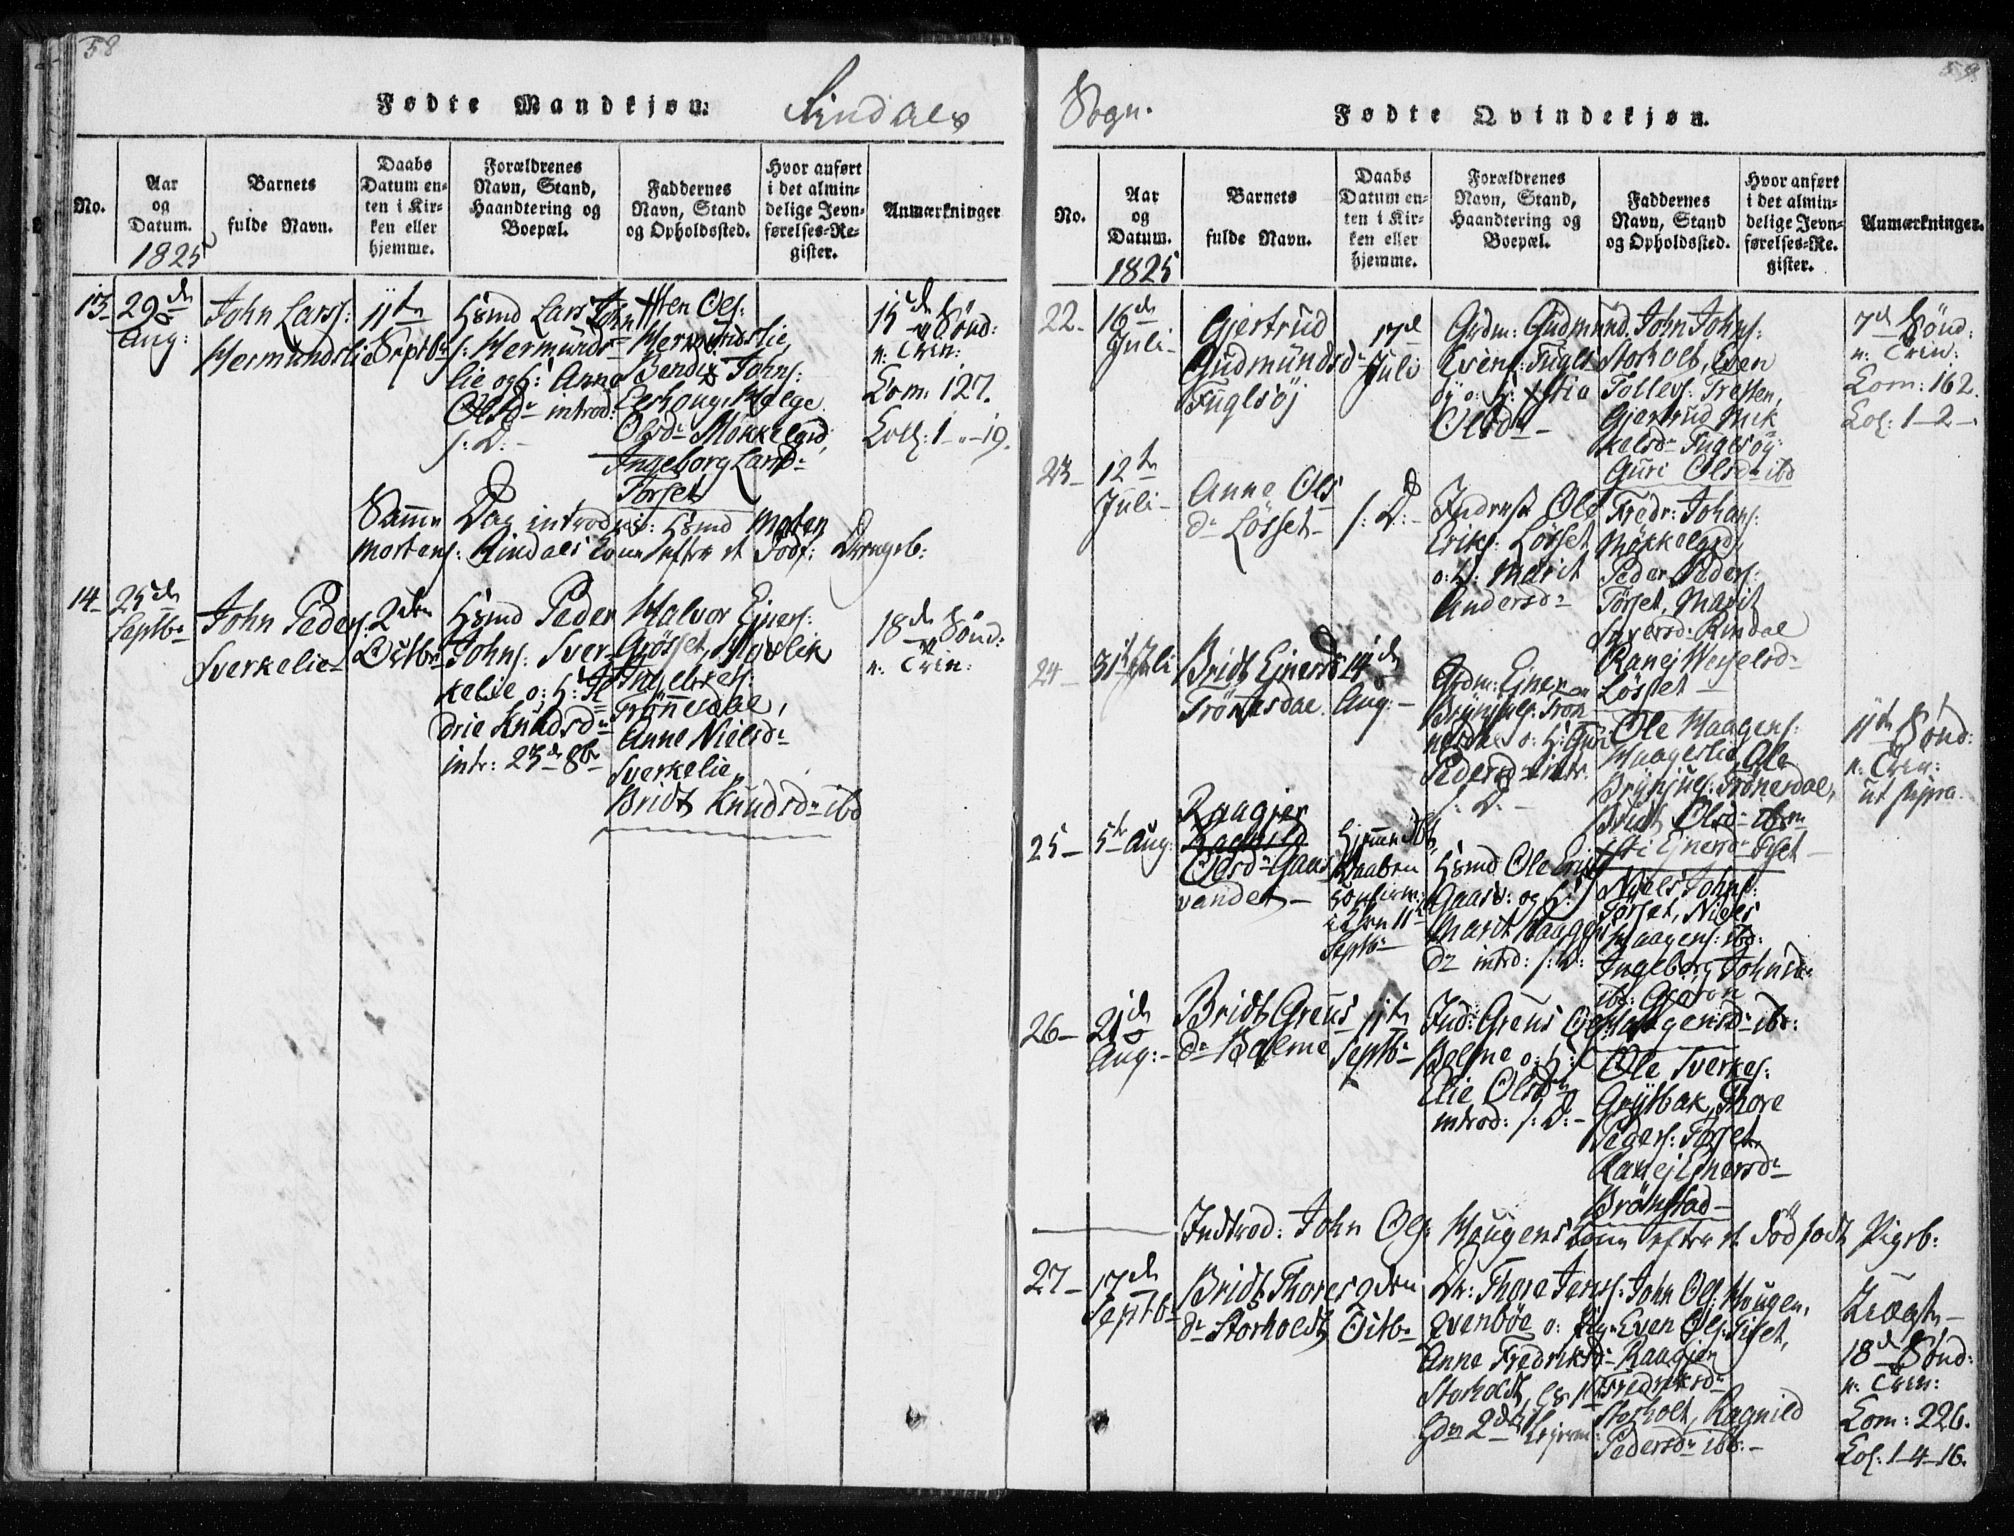 58
Fødte Mandkjøn. Rindals
No.
Aar
og
Datum.
1825
Barnets
fulde Navn.
Daabs
Datum en-
ten i Kir-
ken eller
hjemme.
Forældrenes
Navn, Stand,
Haandtering og
Boepæl.
Faddernes
Navn, Stand
og Opholdssted.
Hvor anført
i det almin-
delige Jevn-
førelses-Re-
gister.
Anmærkninger
13
29de
Aug:
John Lars:
Hermundslie
11te
Septbr
Hsmd Lars John
s: Hermunds-
lie og H: Anne
Olsdr introd:
s: D:
Hen Ols:
Hermundslie,
Bendix Johns:
Helge
Olsdr Møkkelgrd,
Ingeborg Larsdr
Torset
15de Sønd:
n: Trin:
Com: 127.
Coll: 1 - 19.
Samme Dag introd: Hsmd Moten
Mortens: Rindals Kone efter et Dødf: Drengeb:
14
25de
Septbr
John Peders:
Sverkelie
2den
Octbr
Hsmd Peder
Johns: Sver-
kelie o: H: Il
drie Knudsdr
intr: 23de 8br
Halvor Ejners:
Grøset,
Ingebr:
Trønesdal,
Anne Nielsdr
Sverkelie
Bridt Knudsdr ibd
18de Sønd:
n: Trin:
59.
Sogn. Fødte Qvindekjøn.
No.
Aar
og
Datum.
1825
Barnets
fulde Navn.
Daabs
Datum en-
ten i Kir-
ken eller
hjemme.
Forældrenes
Navn, Stand,
Haandtering og
Boepæl.
Faddernes
Navn, Stand
og Opholdssted.
Hvor anført
i det almin-
delige Jevn-
førelses-Re-
gister.
Anmærkninger.
22
16de
Juli
Gjertrud
Gudmundsdr
Fuglsøj
17de
Juli
Grdm: Gudmund
Evens: Fugls
øj o: H: Kstia
Olsdr
John Johns:
Storholt, Even
Tollevs: Tresten,
Gjertrud Mik
kelsdr Fuglsøj
Guri Olsdr ibd
7de Sønd:
n: Trin:
Com: 162.
Col: 1-2
23
12te
Juli
Anne Ols
dr Løsset
s: D:
Inderst Ole
Eriks: Løsset
o: H: Marit
Andersdr
Fredr: Johans:
Møkkelgrd,
Peder Peders:
Torset, Marit
Siversdr: Rindal
Ranej Wesselsdr
Løsset
24
31te Juli
Bridt Ejnersdr
Trønesdal
14de
Aug:
Grdm: Ejner
Brynjuls: Trøn
nesdal o: H: Guri
Pedersdr intr.
s: D:
Ole Haagens:
Haagenslie, Ole
Brynjuls: Trønesdal,
Bridt Olsdr ibm
Ejnersdr
11te Sønd:
n: Trin:
ut supra
25
5te Aug:
Raagjer
Ragnild
Olsdr Gaas
vandet
Hjemmedbt,
Daaben
Confirm:
i Kirken 11te
Septbr
Hsmd Ole Erik
Gaasv: og H:
Marit Haagen
dr introd: s: D:
Niels Johns:
Torset, Niels
Haagens: ibd:
Ingeborg Johnsdr
ibd: Gjøron
Haagensdr ibd:
26
21de
Aug:
Bridt Greus
dr Bolme
11te
Septbr
Ind: Greus Ols:
Bolme o: H:
Elie Olsdr
introd: s: D:
Ole Sverkes:
Grytbak, Thore
Peders: Torset,
Ranej Ejnersdr
Brønstad
Indtrod: John Ols: Haugens Kone efter et Dødfødt Pigeb:
27
17de
Septbr
Bridt Thores
dr Storholdt
2den
Octbr
Dr: Thore Jens:
Evenbøe o: Pige
Anne Fredriksdr
Storholdt, bgs
2det Lejerm:
John Ols: Haugen,
Even Ols: Tiset,
Raagjer
Fredriksdr
Storholt, Ragnild
Pedersdr ibd.
Uægte
18de Sønd:
n: Trin:
Com: 226.
Col: 1-4-16.